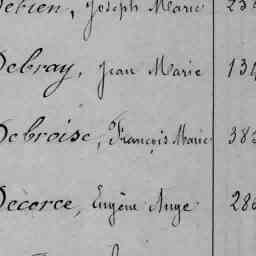 Joseph Marie
Debray, Jean Marie 134
Debroise, François Marie 383
Decorce, Eugène Ange 286